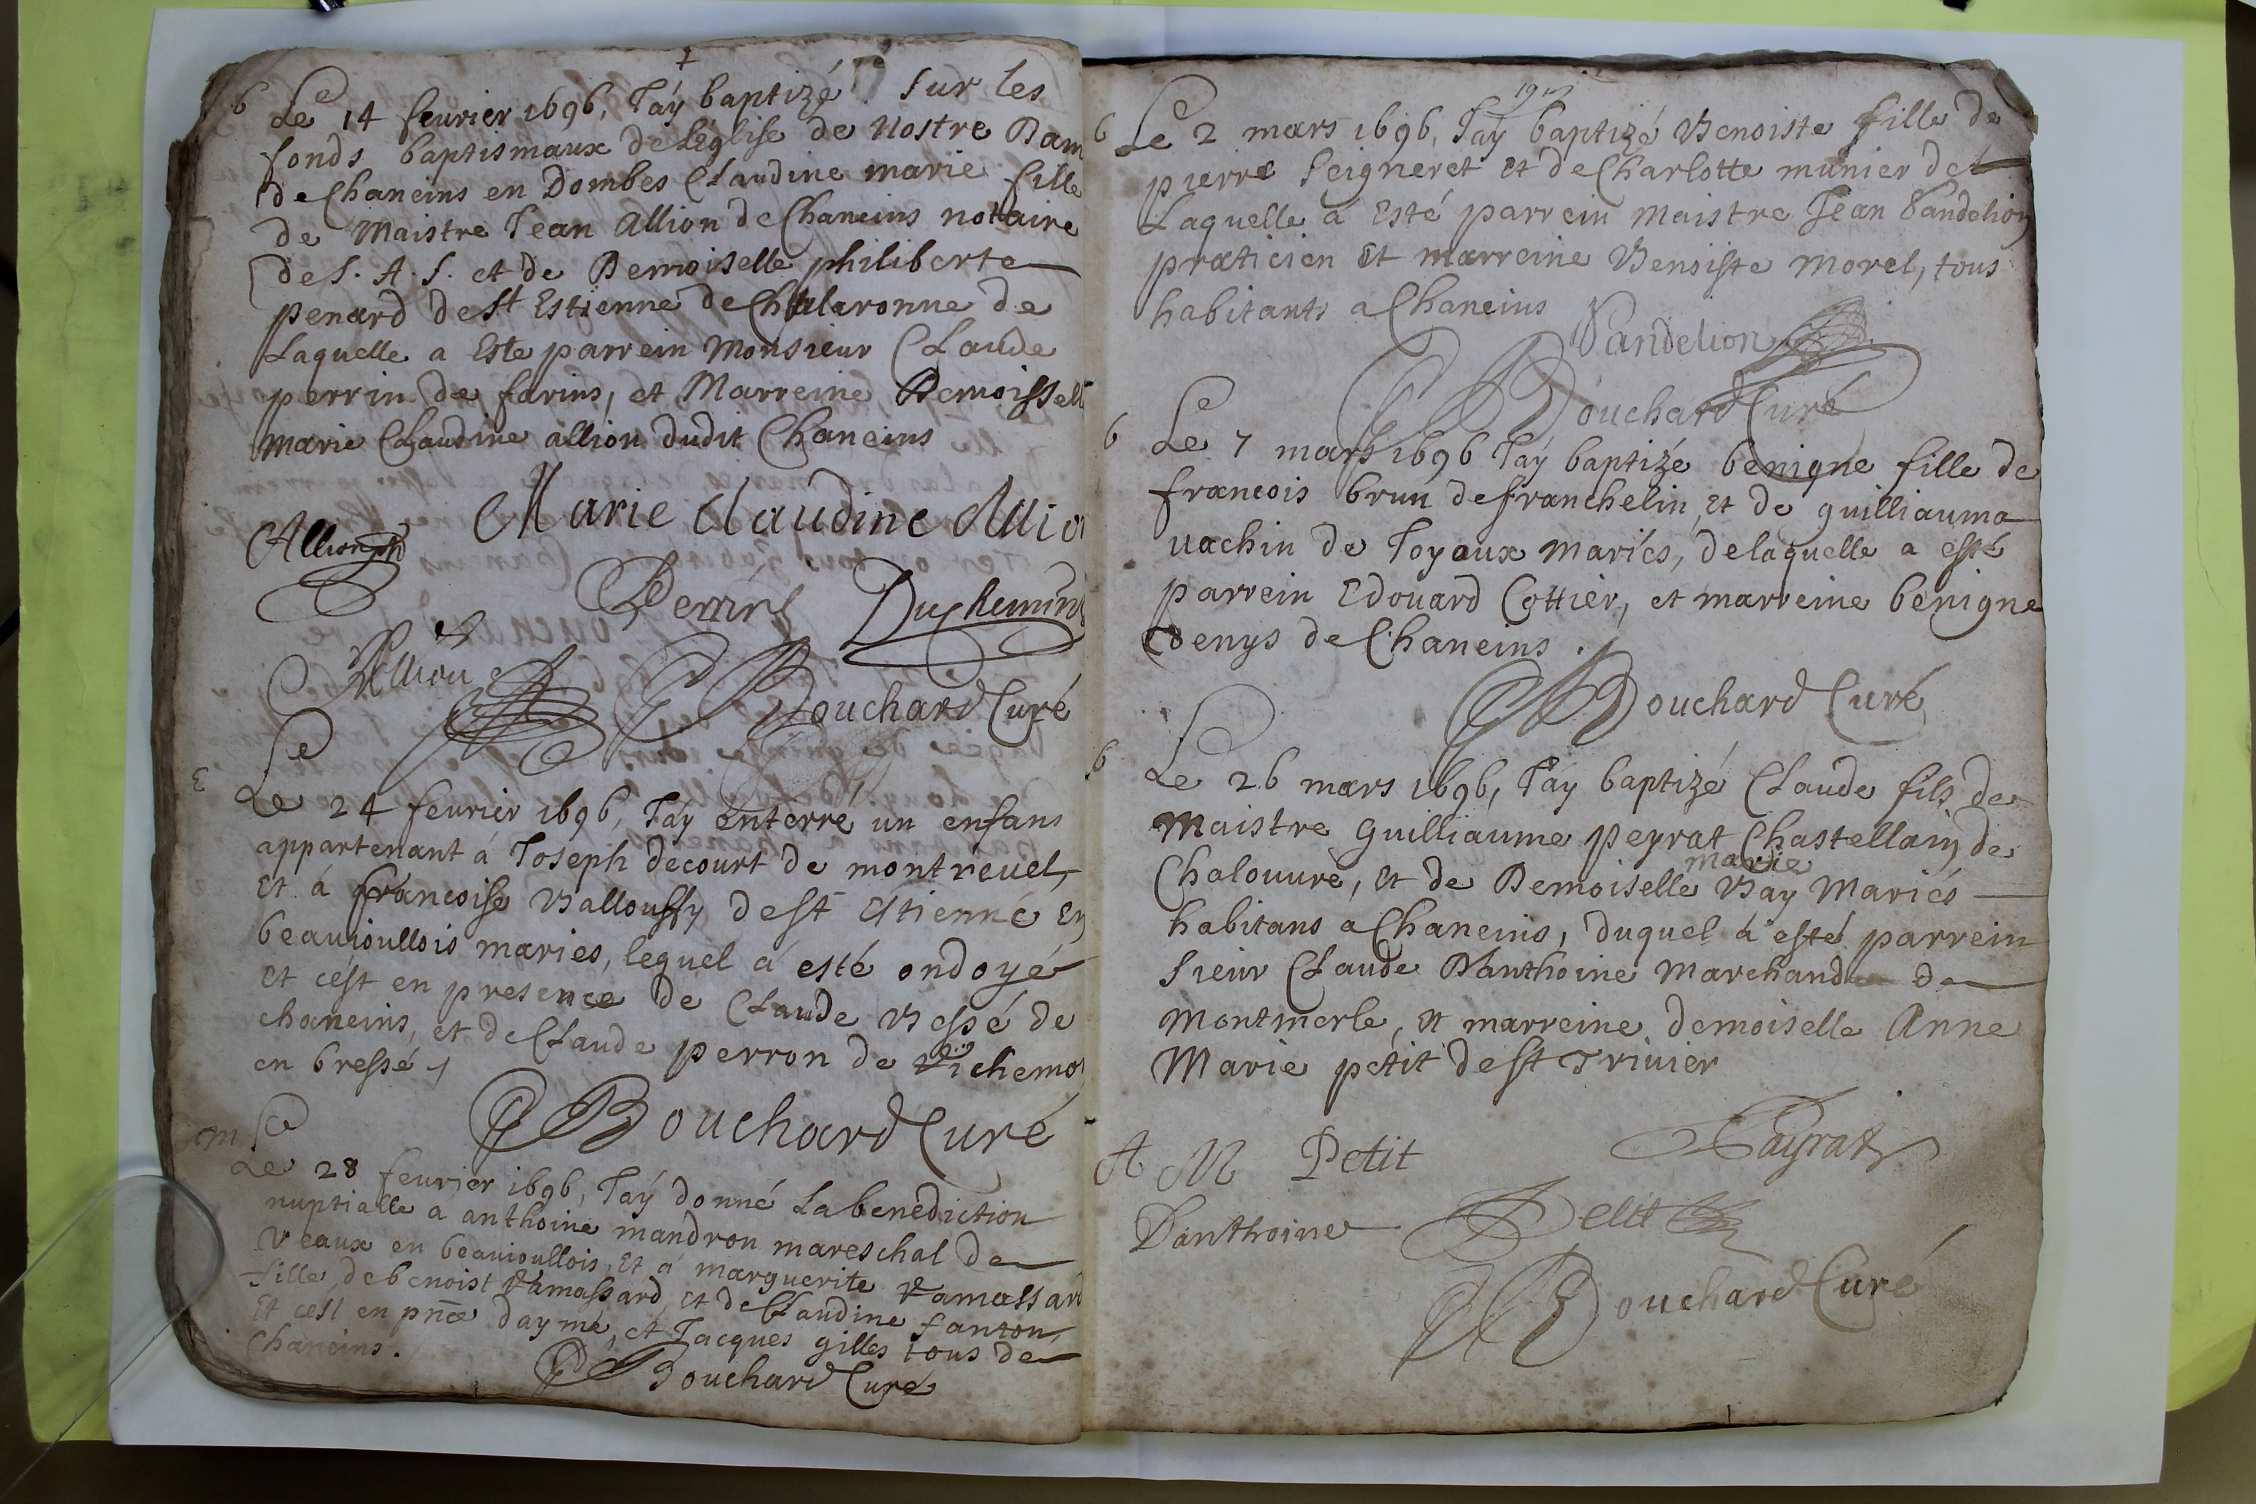 +
b Le 14 feurier 1696, J'ay baptizé sur les
fonds baptismaux de Léglise de Nostre Dam
de Chaneins en Dombes Claudine marie fille
de Maistre Jean Allion de Chaneins notaire
de S. A. S. et de Demoiselle philiberte
penard de St Estienne de Chalaronne de
Laquelle a Este parrein Monsieur Claude
perrin de farins, et Marreine Demoissell
marie Claudine allion dudit Chaneins
Marie Claudine Allio
Allion
Perrin
Allion
Bouchard Curé
E Le 24 feurier 1696, J'ay enterré un enfans
appartenant á Joseph decourt de montreuel,
Et á francoise Ballouffy de St Estienne En
beauioullois mariés, lequel á esté ondoyé
Et cést en presence de Claude Bessé de
chaneins, et de Claude perron de Richemo
en bresse
Bouchard Curé
m Le 28 feurier 1696, J'aÿ donné La benediction
nuptialle a anthoine mandron mareschal de
Veaux en beauioullois, Et á marguerite Ramassard
fille de benoist Ramassard, et de Claudine fanton,
Et cést en pñce daymé, et Jacques gilles tous de
Chaneins.
Bouchard Curé
b Le 2 mars 1696, J'aÿ baptizé Benoiste fille de
pierre Seigneret et de Charlotte munier de
Laquelle á Esté parrein Maistre Jean Vandelion
praticien Et marreine Benoiste Morel, tous
habitants a Chaneins
Vandelion
Bouchard Curé
b Le 7 mars 1696 J'aÿ baptizé benigne fille de
francois brun de franchelin, et de guilliauma
uachin de Toyoux Mariés, de laquelle a esté
parrein Edouard Cottier, et marreine benigne
denys de Chaneins.
Bouchard Curé
b Le 26 mars 1696, J'ay baptizé Claude fils de
Maistre Guilliaume Peyrat Chastellain de
Chalouure, Et de Demoiselle marie Bay Mariés
habitans a Chaneins, duquel á esté parrein
Sieur Claude Danthoine Marchand de
Montmerle, et marreine demoiselle Anne
Marie petit de St Triuier
Payrat
A M Petit
Danthoine
Petit
Bouchard Curé